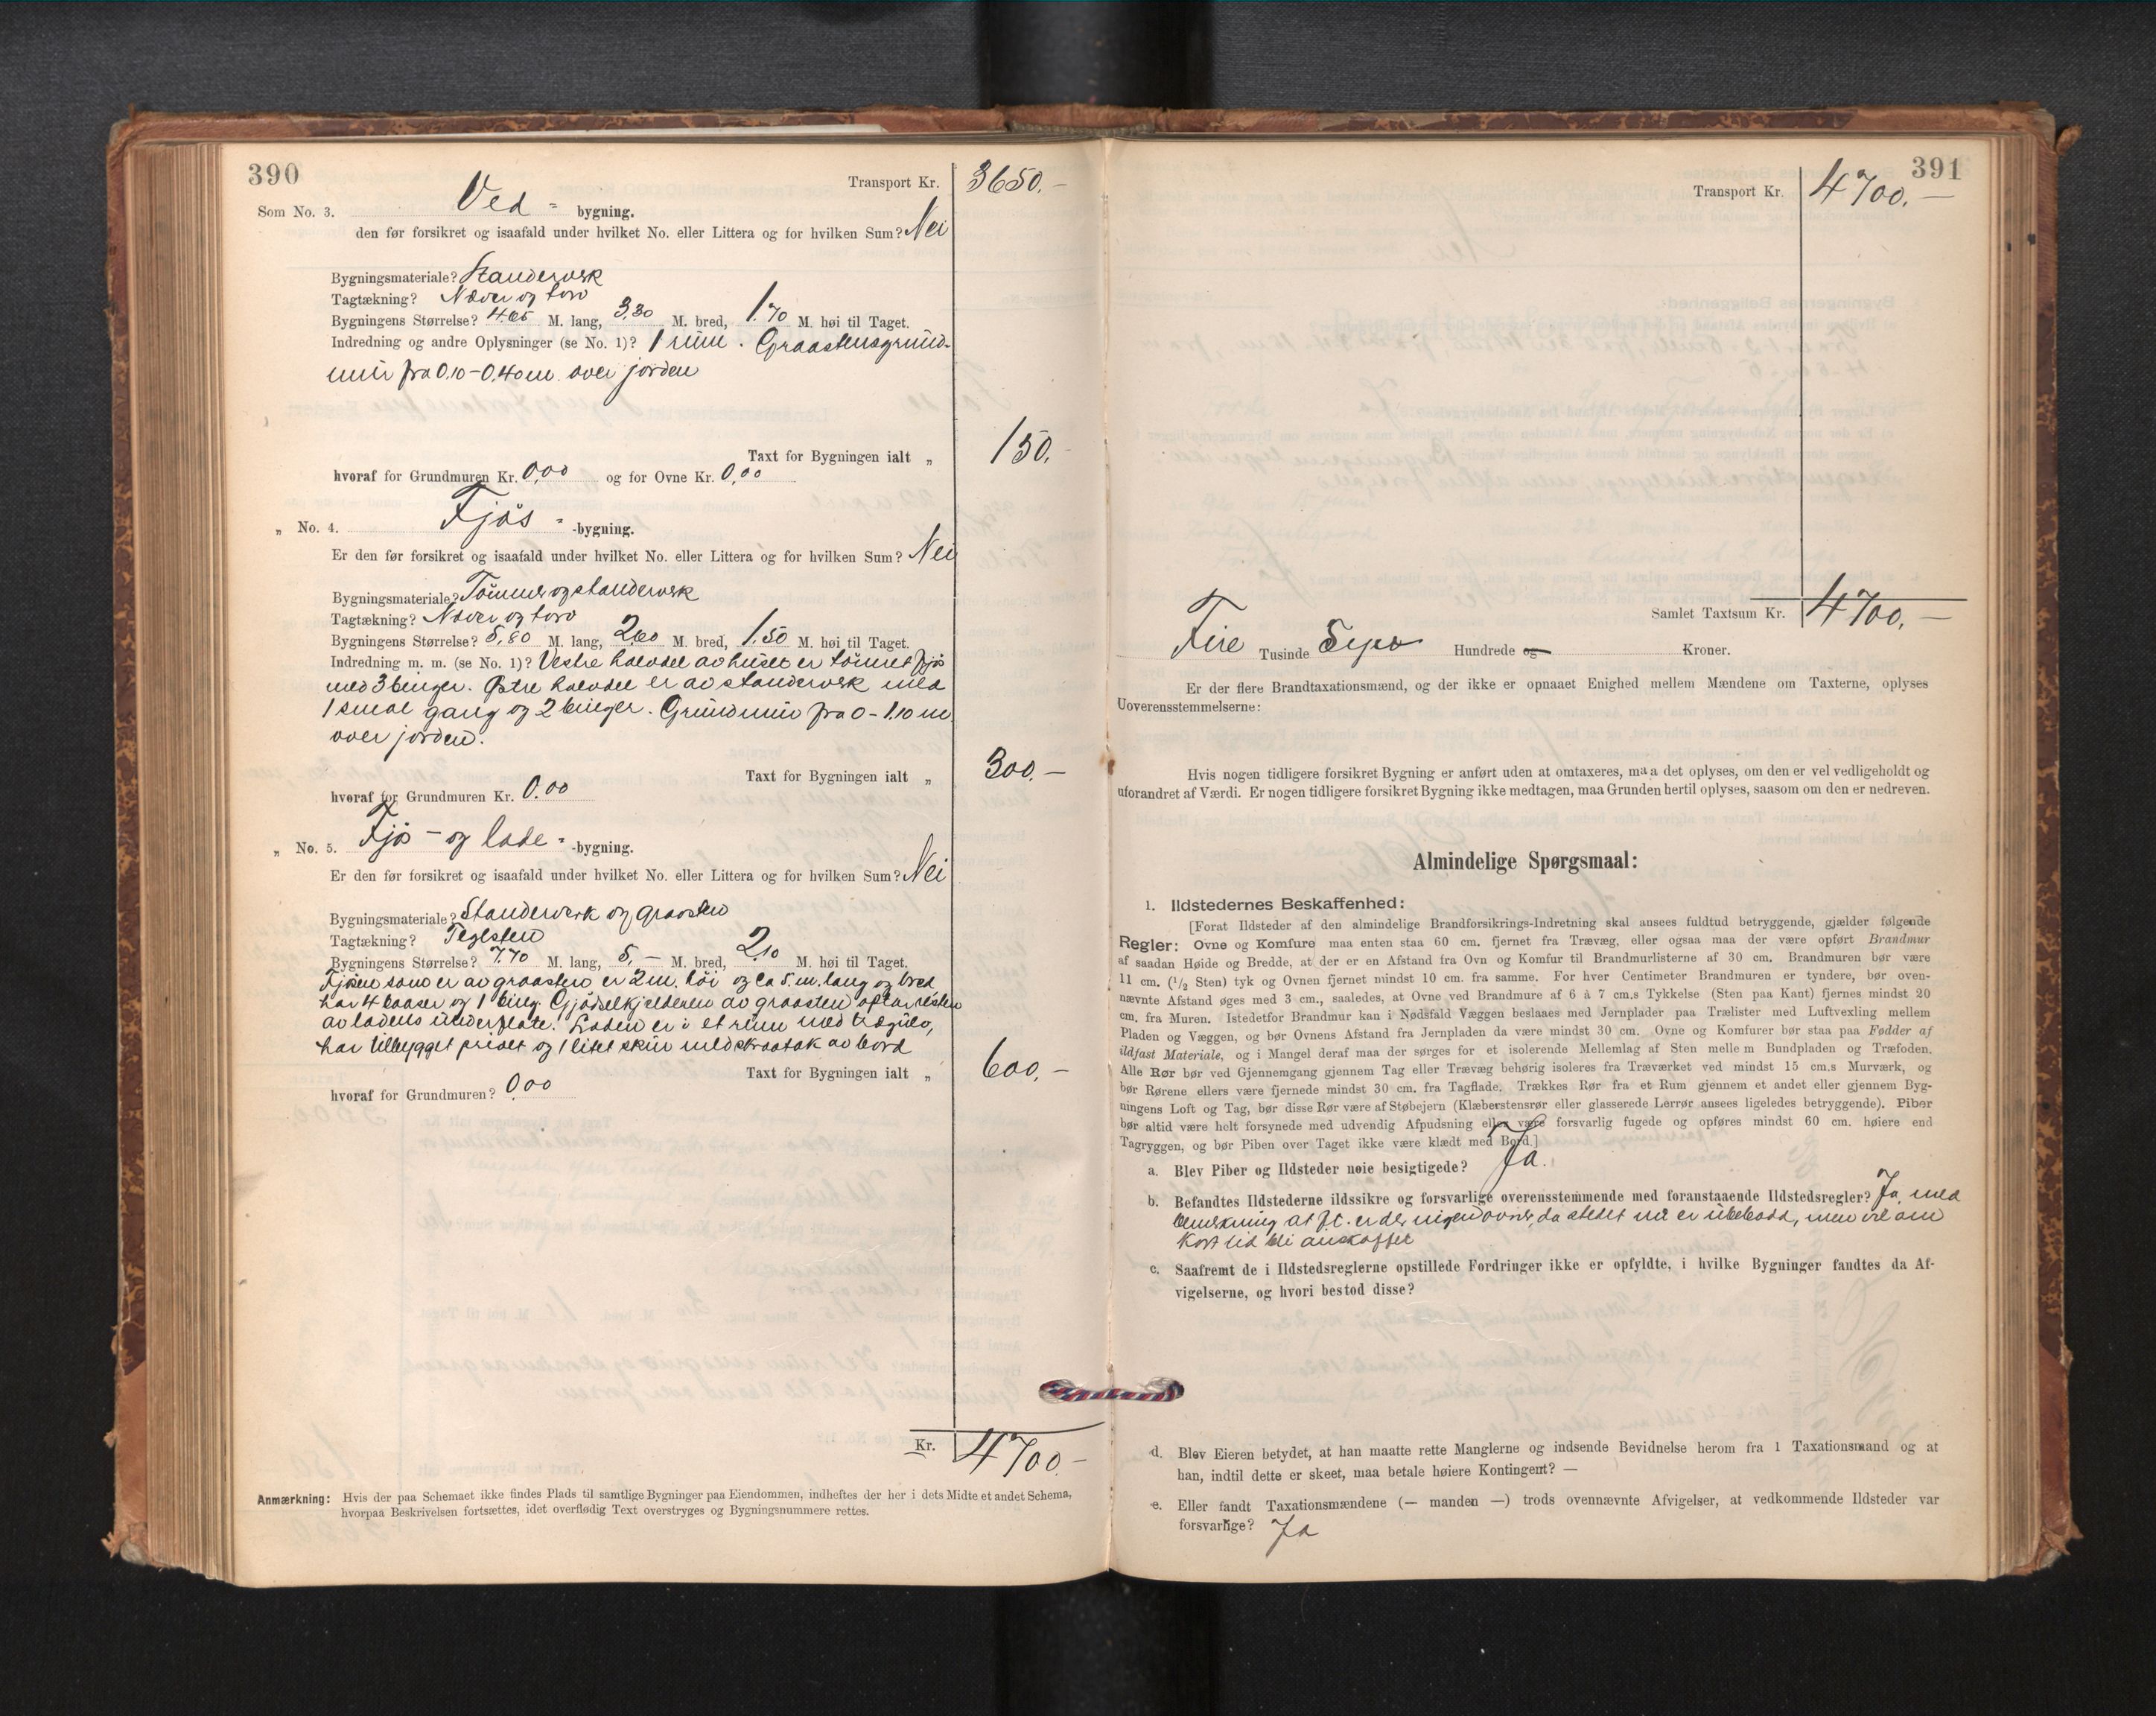 390
Transport Kr. 3650.-
Som No. 3. Ved - bygning.
den før forsikret og isaafald under hvilket No. eller Littera og for hvilken Sum? Nei
Bygningsmateriale? Standerverk
Tagtækning? Næver og torv
Bygningens Størrelse? 4.65 M. lang, 3.30 M. bred, 1.70 M. høi til Taget.
Indredning og andre Oplysninger (se No. 1)? 1 rum. Graastensgrund-
mur fra 0.10-0.40 m. over jorden
Taxt for Bygningen ialt „ 150.
hvoraf for Grundmuren Kr. 0,00 og for Ovne Kr. 0,00
„ No. 4. Fjøs - -bygning.
Er den før forsikret og isaafald under hvilket No. eller Littera og for hvilken Sum? Nei
Bygningsmateriale? Tömmer og standerverk
Tagtækning? Næver og torv
Bygningens Størrelse? 5,80 M. lang, 2,60 M. bred, 1.50 M. høi til Taget.
Indredning m. m. (se No. 1)? Vestre halvdel av huset er tömret fjös
med 3 binger. Østre halvdel er av standerverk med
1 smal gang og 2 binger. Grundmur fra 0-1.10 m
over jorden.
Taxt for Bygningen ialt „ 300.-
hvoraf for Grundmuren Kr. 0.00
„ No. 5. Fjøs - og lade - -bygning.
Er den før forsikret og isaafald under hvilket No. eller Littera og for hvilken Sum? Nei
Bygningsmateriale? Standerverk og graasten
Tagtækning? Teglsten
Bygningens Størrelse? 7.70 M. lang, 5,- M. bred, 2,10 M. høi til Taget.
Fjösen som er av graasten er 2 m. höi og ca 5 m. lang og bred
har 4 baaser og 1 bing. Gjödselkjelderen av graasten optar resten
av ladens underflate. Laden er i et rum med trægulv,
har tilbygget privet og 1 litet skur med skraatak av bord
Taxt for Bygningen ialt „ 600.-
hvoraf for Grundmuren? 0,00
Kr. 4700.-
Anmærkning: Hvis der paa Schemaet ikke findes Plads til samtlige Bygninger paa Eiendommen, indheftes der her i dets Midte et andet Schema,
hvorpaa Beskrivelsen fortsættes, idet overflødig Text overstryges og Bygningsnummere rettes.
391
Transport Kr. 4700.-
Samlet Taxtsum Kr. 4700.-
Fire Tusinde Syv Hundrede og Kroner.
Er der flere Brandtaxationsmænd, og der ikke er opnaaet Enighed mellem Mændene om Taxterne, oplyses
Uoverensstemmelserne:
Hvis nogen tidligere forsikret Bygning er anført uden at omtaxeres, maa det oplyses, om den er vel vedligeholdt og
uforandret af Værdi. Er nogen tidligere forsikret Bygning ikke medtagen, maa Grunden hertil oplyses, saasom om den er nedreven.
Almindelige Spørgsmaal:
1. Ildstedernes Beskaffenhed:
[Forat Ildsteder af den almindelige Brandforsikrings-Indretning skal ansees fuldtud betryggende, gjælder følgende
Regler: Ovne og Komfure maa enten staa 60 cm. fjernet fra Trævæg, eller ogsaa maa der være opført Brandmur
af saadan Høide og Bredde, at der er en Afstand fra Ovn og Komfur til Brandmurlisterne af 30 cm. Brandmuren bør være
11 cm. (1/2 Sten) tyk og Ovnen fjernet mindst 10 cm. fra samme. For hver Centimeter Brandmuren er tyndere, bør oven-
nævnte Afstand øges med 3 cm., saaledes, at Ovne ved Brandmure af 6 à 7 cm.s Tykkelse (Sten paa Kant) fjernes mindst 20
cm. fra Muren. Istedetfor Brandmur kan i Nødsfald Væggen beslaaes med Jernplader paa Trælister med Luftvexling mellem
Pladen og Væggen, og bør Ovnens Afstand fra Jernpladen da være mindst 30 cm. Ovne og Komfurer bør staa paa Fødder af
ildfast Materiale, og i Mangel deraf maa der sørges for et isolerende Mellemlag af Sten mellem Bundpladen og Træfoden.
Alle Rør bør ved Gjennemgang gjennem Tag eller Trævæg behørig isoleres fra Træverket ved mindst 15 cm.s Murværk, og
bør Rørene ellers være fjernede mindst 30 cm. fra Tagflade. Trækkes Rør fra et Rum gjennem et andet eller gjennem Byg-
ningens Loft og Tag, bør disse Rør være af Støbejern (Klæberstensrør eller glasserede Lerrør ansees ligeledes betryggende). Piber
bør altid være helt forsynede med udvendig Afpudsning eller være forsvarlig fugede og opføres mindst 60 cm. høiere end
Tagryggen, og bør Piben over Taget ikke være klædt med Bord.]
a. Blev Piber og Ildsteder nøie besigtigede? Ja.
b. Befandtes Ildstederne ildssikre og forsvarlige overensstemmende med foranstaaende Ildstedsregler? Ja, med
bemerkning at f.t. er der ingen ovner, da stedet nu er ubebodd, men vil om
kort tid bli anskaffet
c. Saafremt de i Ildstedsreglerne opstillede Fordringer ikke er opfyldte, i hvilke Bygninger fandtes da Af-
vigelserne, og hvori bestod disse?
d. Blev Eieren betydet, at han maatte rette Manglerne og indsende Bevidnelse herom fra 1 Taxationsmand og at
han, indtil dette er skeet, maa betale høiere Kontingent? —
e. Eller fandt Taxationsmændene (— manden —) trods ovennævnte Afvigelser, at vedkommende Ildsteder var
forsvarlige? Ja